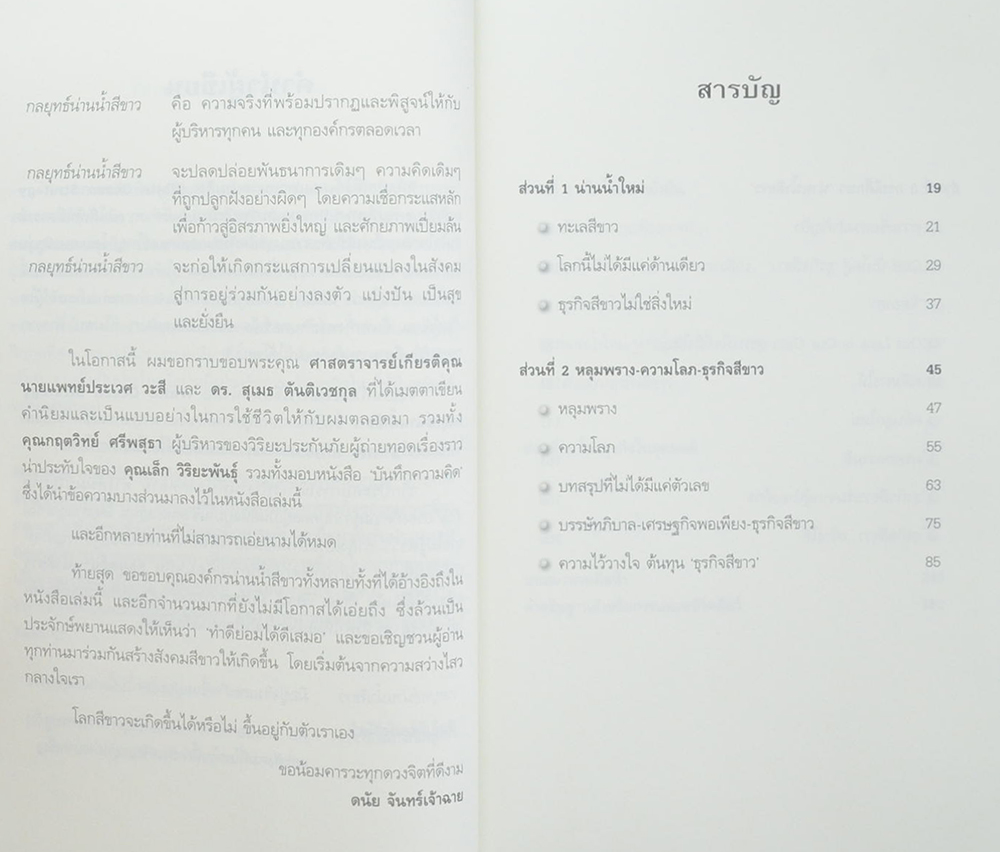 กลยุทธ์น่านน้ำสีขาว คือ ความจริงที่พร้อมปรากฏและพิสูจน์ให้กับ
ผู้บริหารทุกคน และทุกองค์กรตลอดเวลา
กลยุทธ์น่านน้ำสีขาว จะปลดปล่อยพันธนาการเดิมๆ ความคิดเดิมๆ
ที่ถูกปลูกฝังอย่างผิดๆ โดยความเชื่อกระแสหลัก
เพื่อก้าวสู่อิสรภาพยิ่งใหญ่ และศักยภาพเปี่ยมล้น
กลยุทธ์น่านน้ำสีขาว จะก่อให้เกิดกระแสการเปลี่ยนแปลงในสังคม
สู่การอยู่ร่วมกันอย่างลงตัว แบ่งปัน เป็นสุข
และยั่งยืน
ในโอกาสนี้ ผมขอกราบขอบพระคุณ ศาสตราจารย์เกียรติคุณ
นายแพทย์ประเวศ วะสี และ ดร. สุเมธ ตันติเวชกุล ที่ได้เมตตาเขียน
คำนิยมและเป็นแบบอย่างในการใช้ชีวิตให้กับผมตลอดมา รวมทั้ง
คุณกฤตวิทย์ ศรีพสุธา ผู้บริหารของวิริยะประกันภัยผู้ถ่ายทอดเรื่องราว
น่าประทับใจของ คุณเล็ก วิริยะพันธุ์ รวมทั้งมอบหนังสือ ‘บันทึกความคิด’
ซึ่งได้นำข้อความบางส่วนมาลงไว้ในหนังสือเล่มนี้
และอีกหลายท่านที่ไม่สามารถเอ่ยนามได้หมด
ท้ายสุด ขอขอบคุณองค์กรน่านน้ำสีขาวทั้งหลายทั้งที่ได้อ้างอิงถึงใน
หนังสือเล่มนี้ และอีกจำนวนมากที่ยังไม่มีโอกาสได้เอ่ยถึง ซึ่งล้วนเป็น
ประจักษ์พยานแสดงให้เห็นว่า ‘ทำดีย่อมได้ดีเสมอ’ และขอเชิญชวนผู้อ่าน
ทุกท่านมาร่วมกันสร้างสังคมสีขาวให้เกิดขึ้น โดยเริ่มต้นจากความสว่างไสว
กลางใจเรา
โลกสีขาวจะเกิดขึ้นได้หรือไม่ ขึ้นอยู่กับตัวเราเอง
ขอน้อมคารวะทุกดวงจิตที่ดีงาม
ดนัย จันทร์เจ้าฉาย
สารบัญ
ส่วนที่ 1 น่านน้ำใหม่ 19
ทะเลสีขาว 21
โลกนี้ไม่ได้มีแค่ด้านเดียว 29
ธุรกิจสีขาวไม่ใช่สิ่งใหม่ 37
ส่วนที่ 2 หลุมพราง-ความโลภ-ธุรกิจสีขาว 45
หลุมพราง 47
ความโลภ 55
บทสรุปที่ไม่ได้มีแค่ตัวเลข 63
บรรษัทภิบาล-เศรษฐกิจพอเพียง-ธุรกิจสีขาว 75
ความไว้วางใจ ต้นทุน ‘ธุรกิจสีขาว’ 85